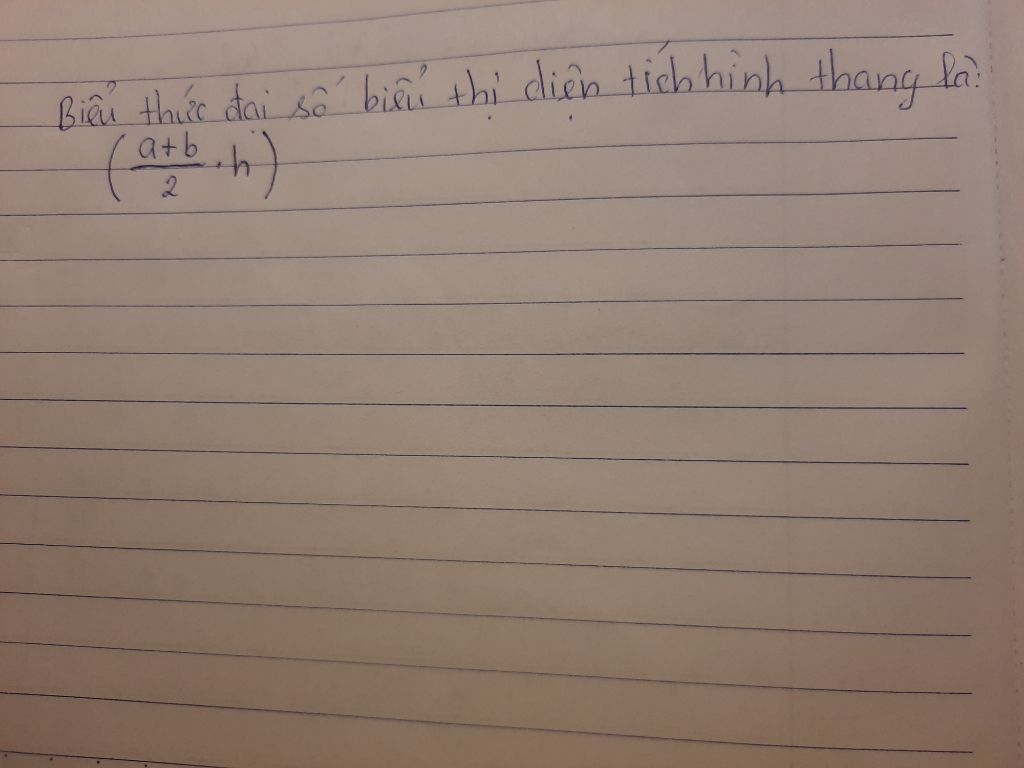 Biểu thức đại số biểu thị diện tích hình thang là:
(\frac{a+b}{2} . h)